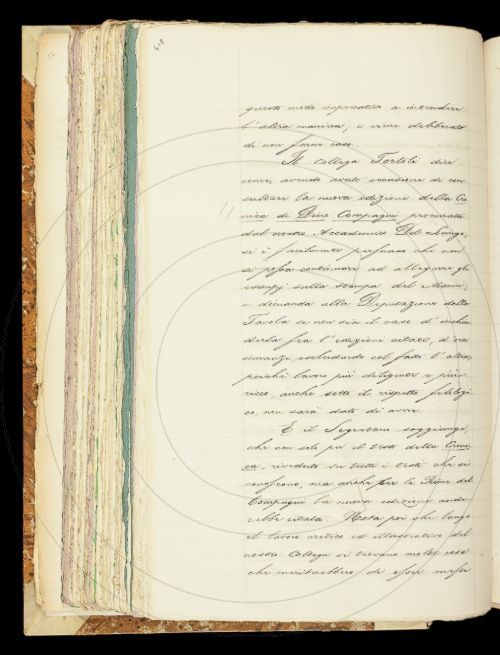 418
questo modo imprecativo a intendere
l'altra maniera, e viene deliberato
di non farne caso.
Il collega Tortoli dice
come, avendo avuto occasione di con-
sultare la nuova edizione della Cro-
nica di Dino Compagni procurata
dal nostro Accademico Del Lungo,
si è facilmente persuaso che non
si possa continuare ad allegare gli
esempj sulla stampa del Manni;
e dimanda alla Deputazione della
Tavola se non sia il caso d'inclu-
derla fra l'edizioni citate, d'ora
innanzi escludendo col fatto l'altra,
poichè lavoro più diligente e più
ricco, anche sotto il rispetto filologi-
co, non sarà dato di avere.
E il Segretario soggiunge,
che non solo per il testo della Croni-
ca, riveduto su tutti i testi che si
conoscono, ma anche per le Rime del
Compagni la nuova edizione andre-
rebbe citata. Nota poi che lungo
il lavoro critico ed illustrativo del
nostro Collega si trovano molte cose
che meriterebbero di esser messe